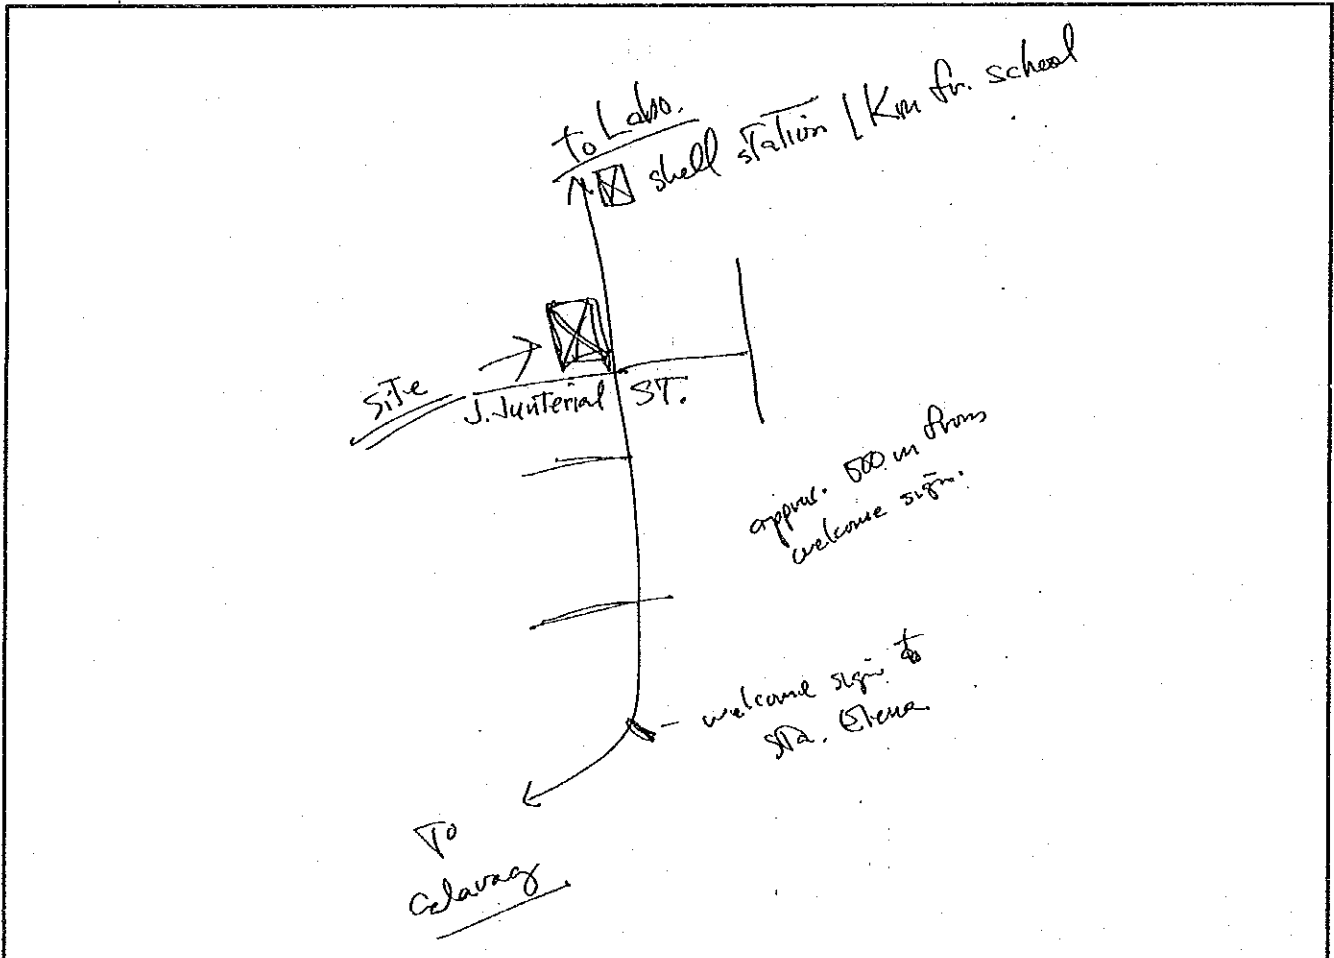 To Labo.
shell station 1 Km fr. school
site
J. Junterial ST.
approx. 500 m from
welcome sign.
welcome sign to
Sta. Elena
To
Calauag